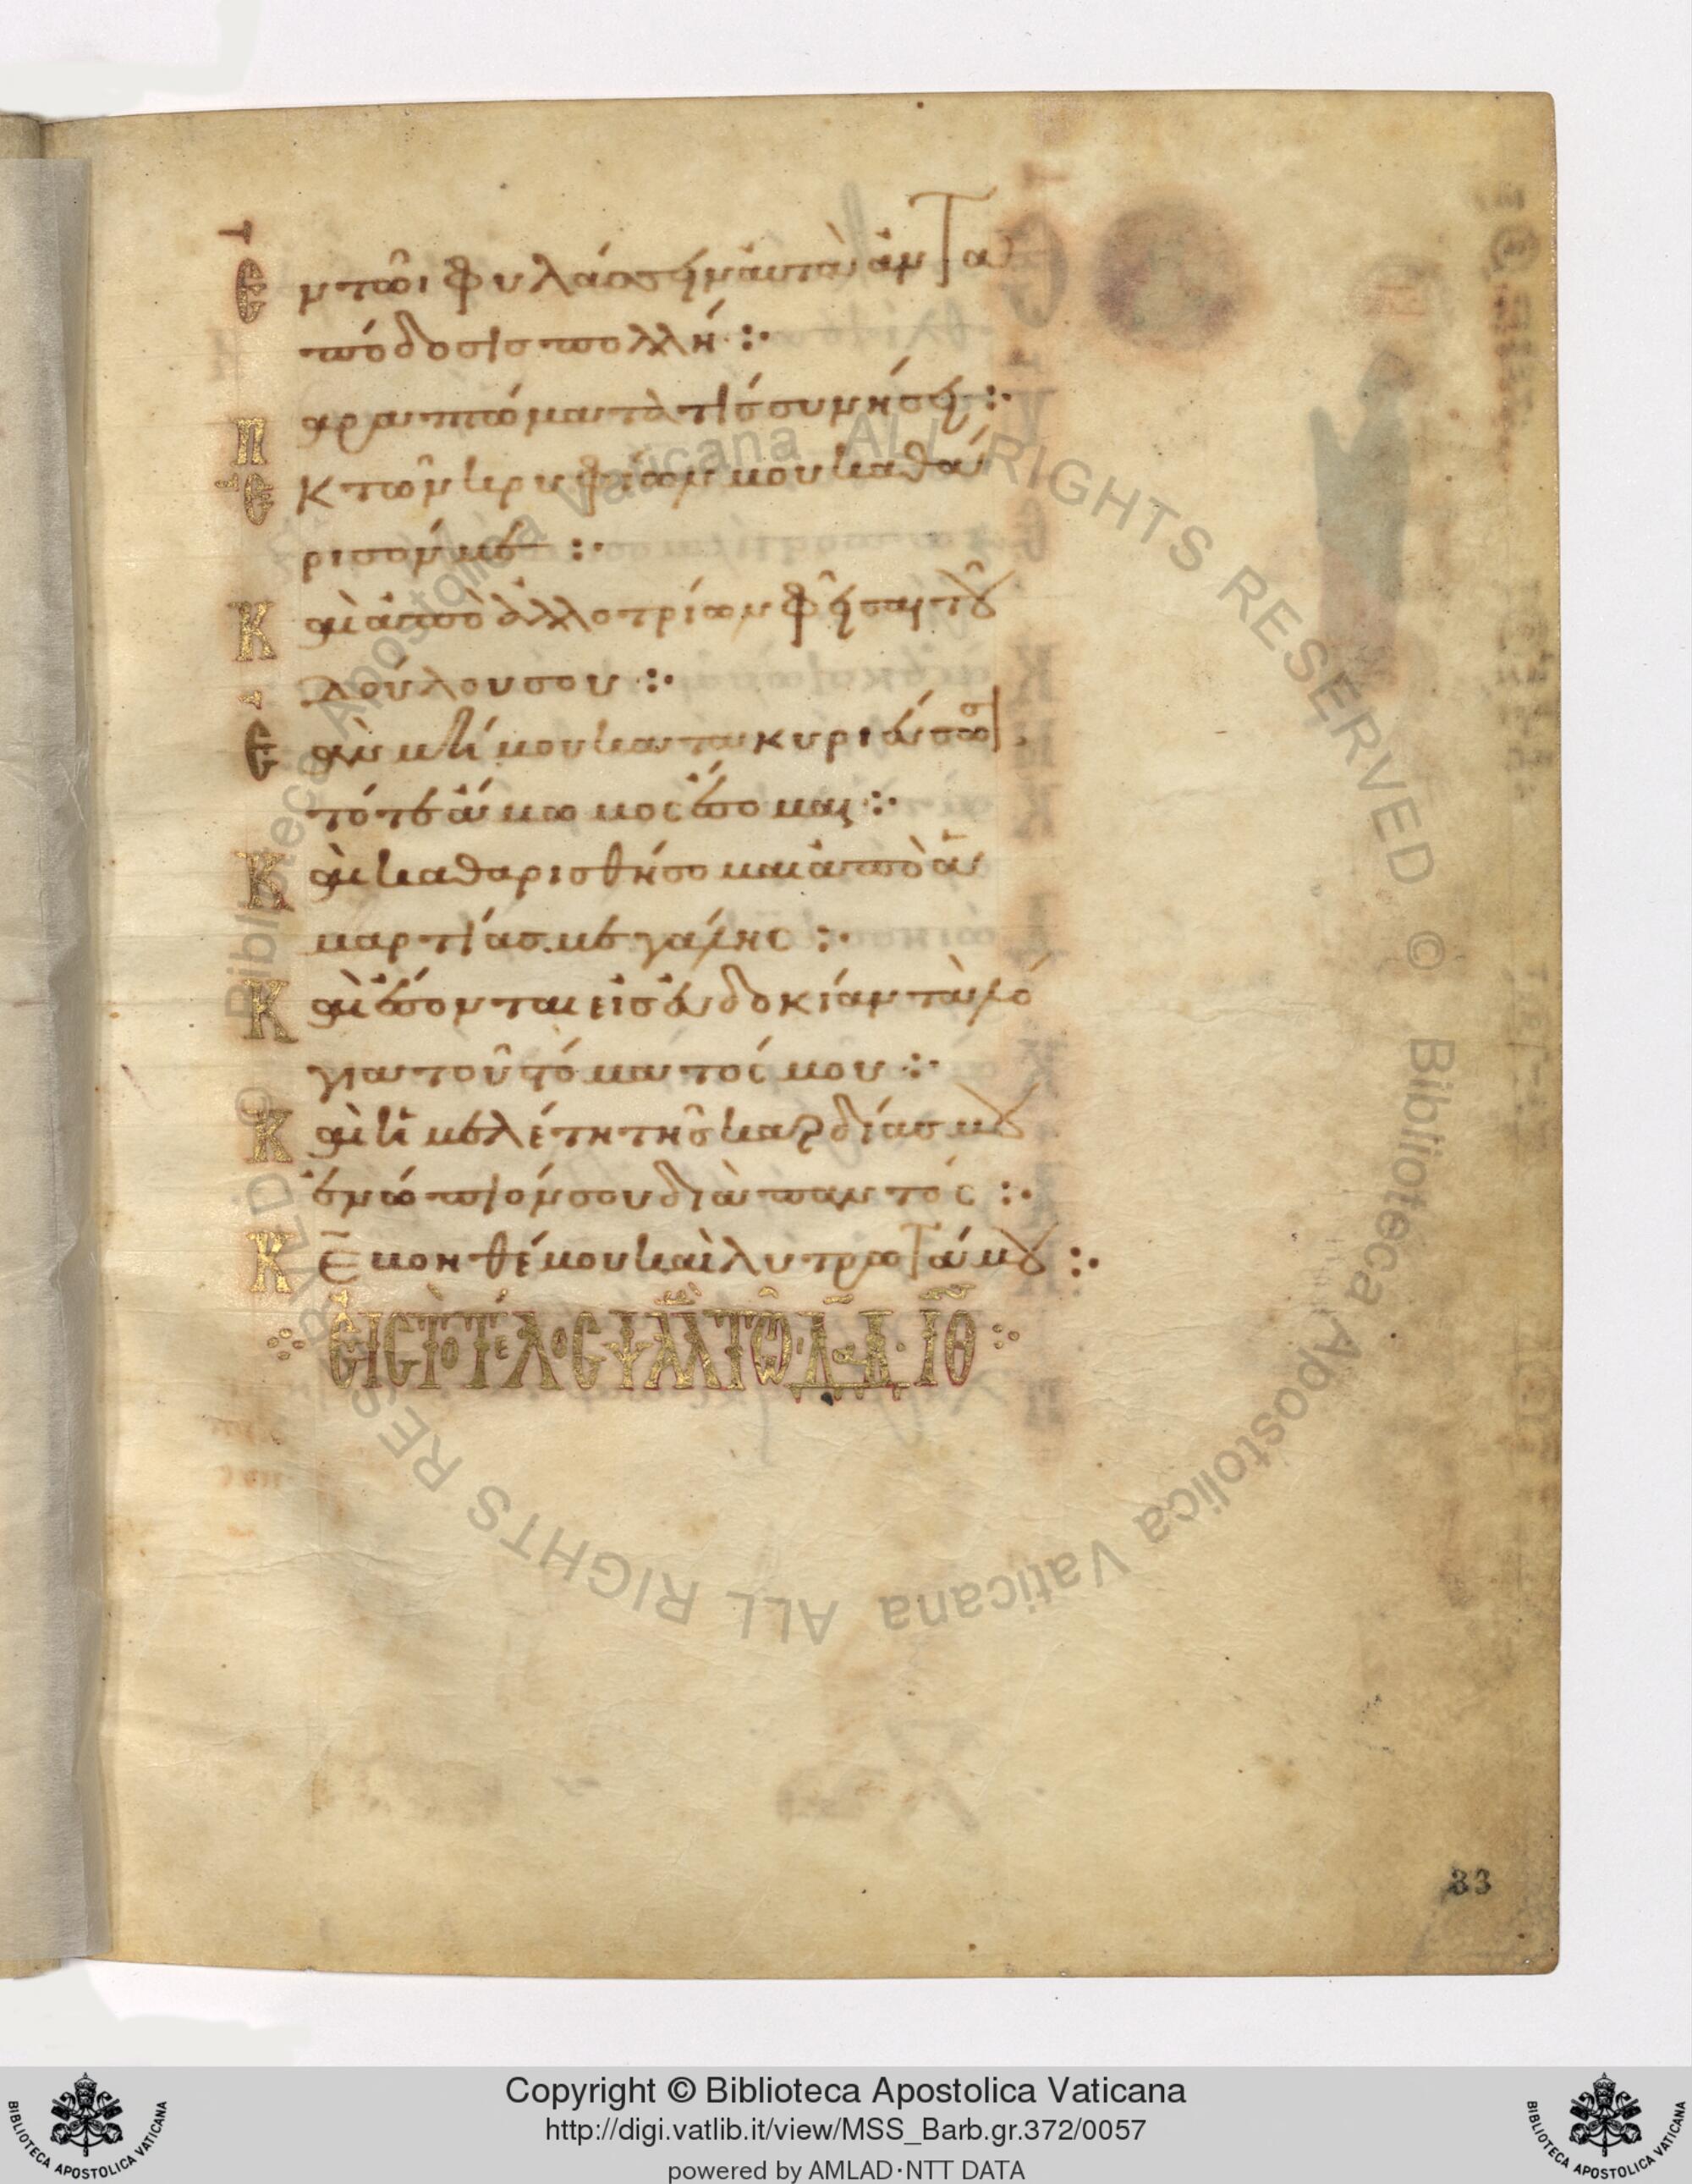 Ἐν τῶι φυλάσσειν αὐτὰ ἀντα
πόδοσις πολλή :·
Παραπτώματα τίς συνήσει :·
Ἐκ τῶν κρυφίων μου καθά
ρισόν με :·
Καὶ ἀπὸ ἀλλοτρίων φεῖσαι τοῦ
δούλου σου :·
Ἐὰν μή μου κατακυριεύσωσι
τότε ἄμωμος ἔσομαι :·
Καὶ καθαρισθήσομαι ἀπὸ ἁ
μαρτίας μεγάλης :·
Καὶ ἔσονται εἰς εὐδοκίαν τὰ λό
για τοῦ στόματός μου :·
Καὶ ἡ μελέτη τῆς καρδίας μου
ἐνώπιόν σου διὰ παντός :·
Κε βοηθέ μου καὶ λυτρωτά μου :·
ΕΙΣ ΤΟ ΤΕΛΟΣ ΨΑΛΜ ΤΩ ΔΑΔ ΙΘ
33
Biblioteca Apostolica Vaticana ALL RIGHTS RESERVED © Biblioteca Apostolica Vaticana ALL RIGHTS RESERVED ©
Copyright © Biblioteca Apostolica Vaticana
http://digi.vatlib.it/view/MSS_Barb.gr.372/0057
powered by AMLAD·NTT DATA
BIBLIOTECA APOSTOLICA VATICANA
BIBLIOTECA APOSTOLICA VATICANA